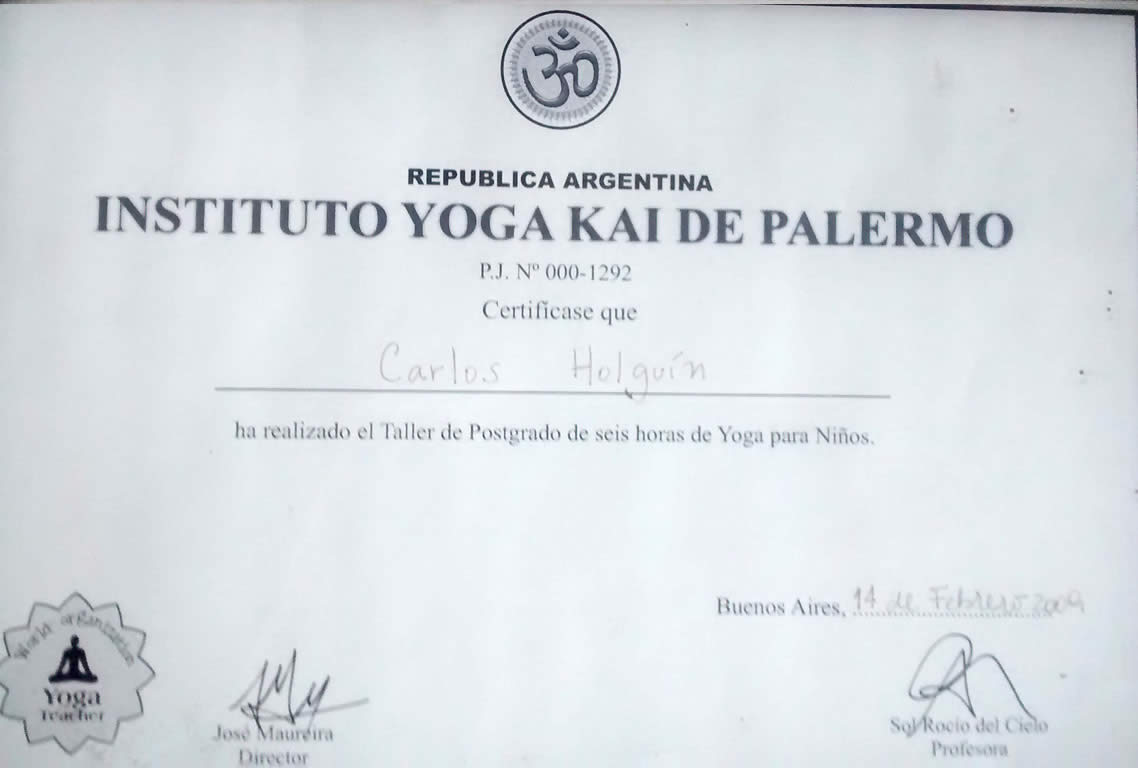 ॐ
REPUBLICA ARGENTINA
INSTITUTO YOGA KAI DE PALERMO
P.J. Nº 000-1292
Certifícase que
Carlos Holguín
ha realizado el Taller de Postgrado de seis horas de Yoga para Niños.
Buenos Aires, 14 de Febrero 2009
World organization
Yoga
Teacher
José Maureira
Director
Sol Rocío del Cielo
Profesora